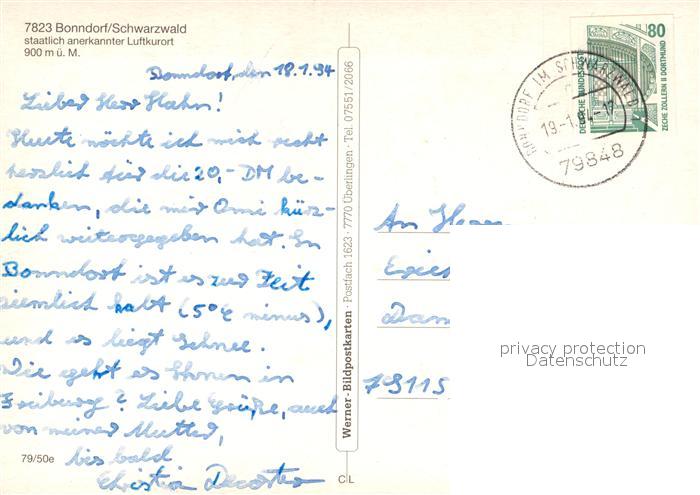 7823 Bonndorf/Schwarzwald
staatlich anerkannter Luftkurort
900 m ü. M.
Bonndorf, den 18.1.94
Lieber Herr Hahn!
Heute möchte ich mich recht
herzlich für die 20,- DM be-
danken, die mir Omi kürz-
lich weitergegeben hat. In
Bonndorf ist es zur Zeit
ziemlich kalt (5°C minus),
und es liegt Schnee.
Wie geht es Ihnen in
Freiburg? Liebe Grüße, auch
von meiner Mutter,
bis bald
Christia
79/50e
Werner-Bildpostkarten · Postfach 1623 · 7770 Überlingen · Tel. 07551/2066
C/L
80
DEUTSCHE BUNDESPOST
ZECHE ZOLLERN II DORTMUND
BONNDORF IM SCHWARZWALD
19.-1.94
79848
An
79115
privacy protection
Datenschutz